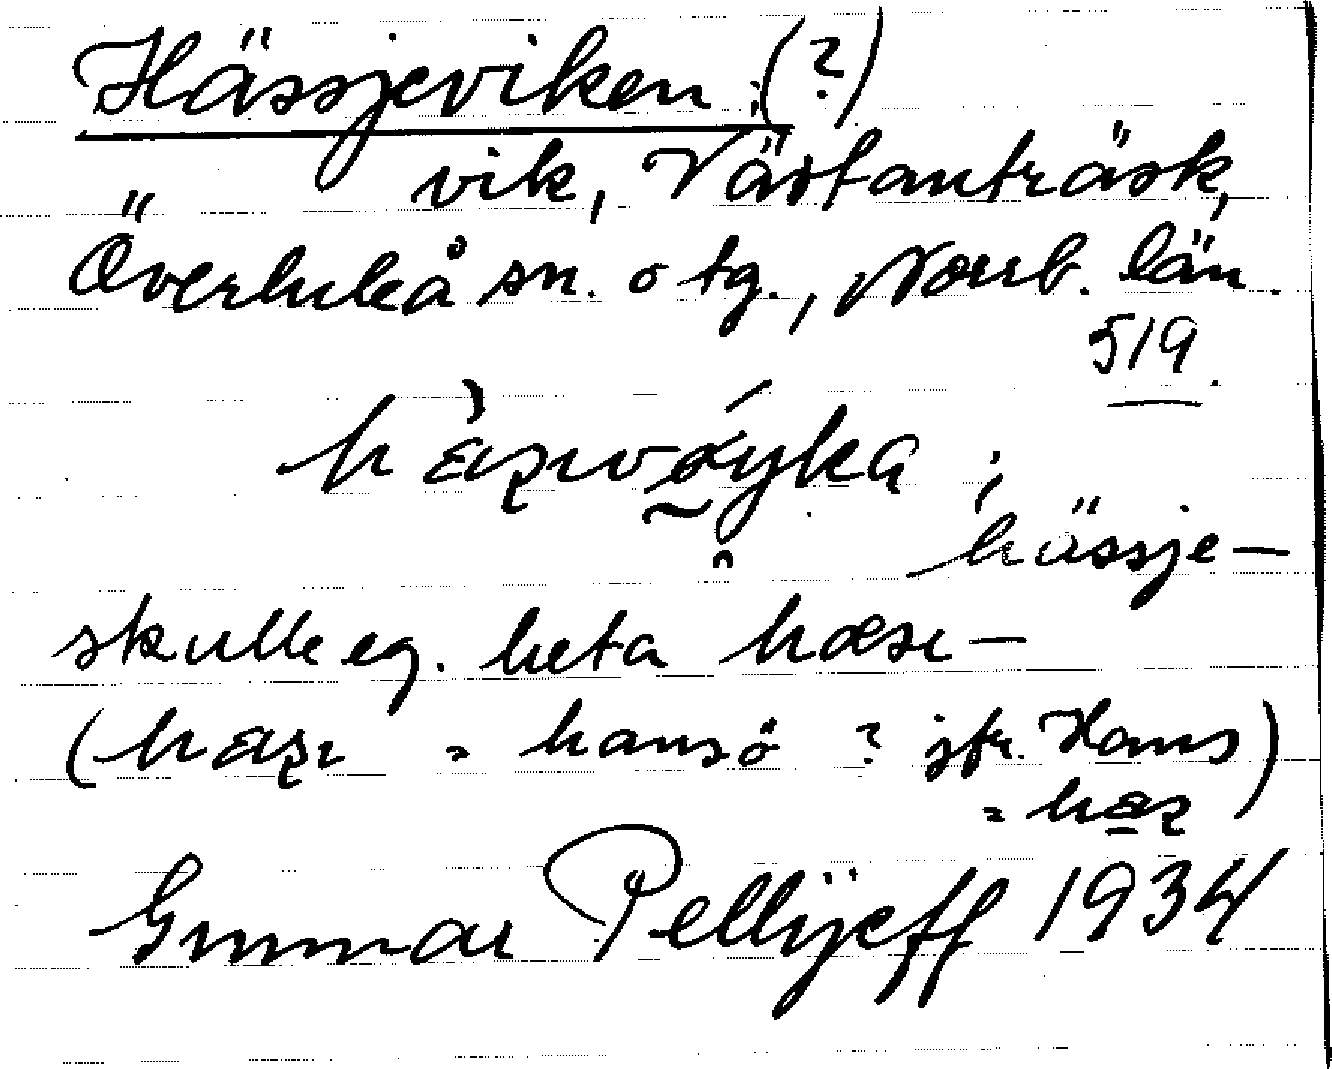 Hässjeviken ; (?)
vik, Västanträsk,
Överluleå sn. o tg., Norrb. län.
519.
hässje-
skulle eg. heta hæsı-
( = hansö ? jfr. Hans)
=
Gunnar Pellijeff 1934